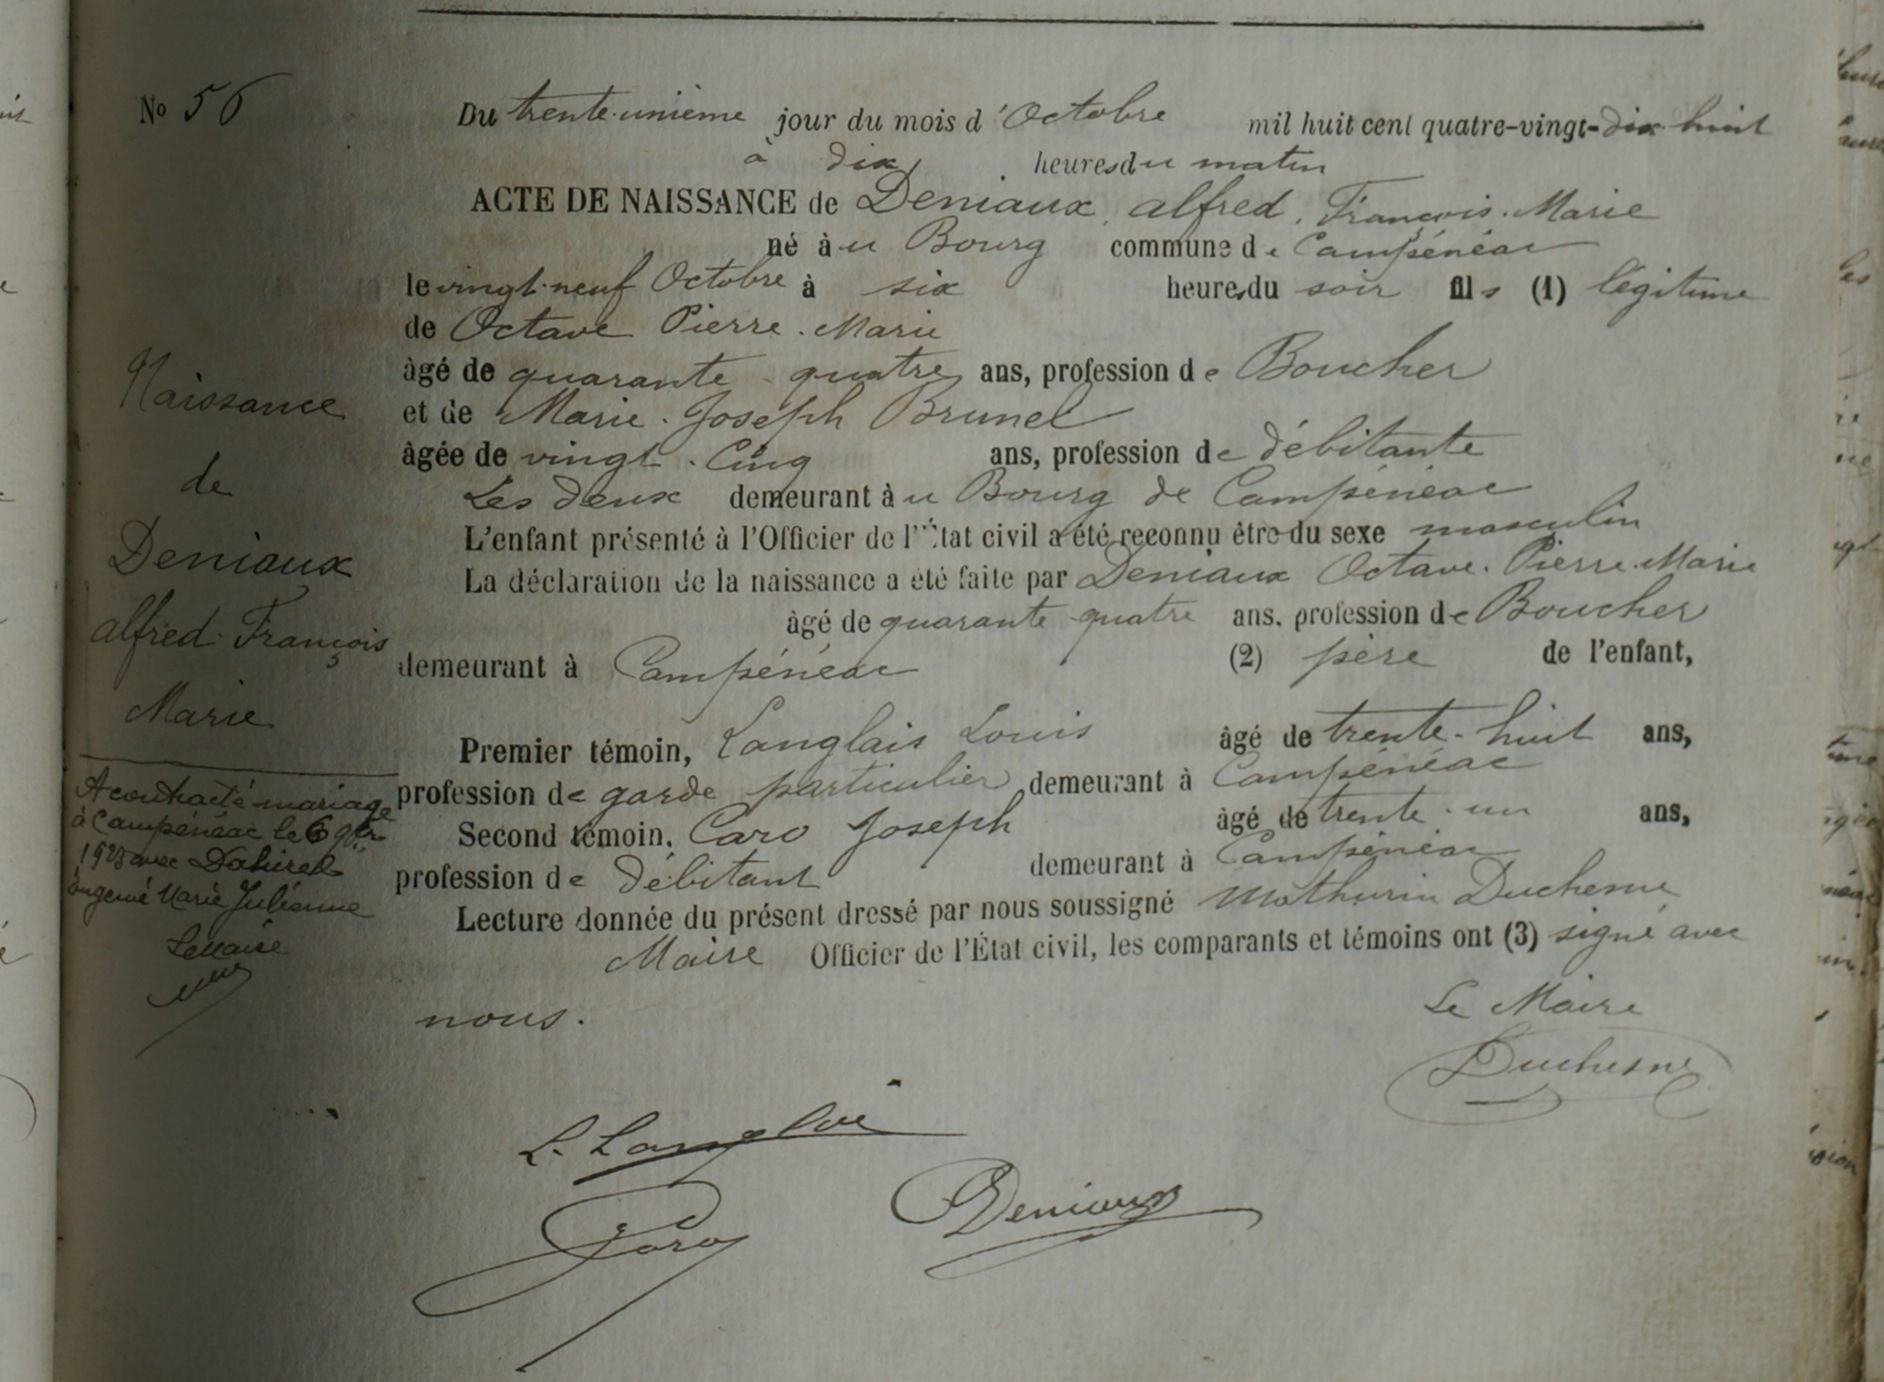 No 56
Du trente-unième jour du mois d'Octobre mil huit cent quatre-vingt-dix-huit
à dix heures du matin
ACTE DE NAISSANCE de Deniaux, alfred, François. Marie
né à u Bourg commune de Campénéac
le vingt-neuf Octobre à six heures du soir fils (1) légitime
de Octave Pierre. Marie
âgé de quarante-quatre ans, profession de Boucher
et de Marie. Joseph Brunel
âgée de vingt-Cinq ans, profession de débitante
Les deux demeurant à u Bourg de Campénéac
L'enfant présenté à l'Officier de l'État civil a été reconnu être du sexe masculin
La déclaration de la naissance a été faite par Deniaux Octave. Pierre. Marie
âgé de quarante-quatre ans, profession de Boucher
demeurant à Campénéac (2) père de l'enfant,
Premier témoin, Langlais Louis âgé de trente-huit ans,
profession de garde particulier demeurant à Campénéac
Second témoin, Caro Joseph âgé de trente-un ans,
profession de Débitant demeurant à Campénéac
Lecture donnée du présent dressé par nous soussigné Mathurin Duchesne
Maire Officier de l'État civil, les comparants et témoins ont (3) signé avec
nous.
Le Maire
Duchesne
L. Langlais
Caro
Deniaux
Naissance
de
Deniaux
alfred. François
Marie
A contracté mariage
à Campénéac le 6 9bre
avec Dahirel
Eugenie Marie Julienne
Le Maire